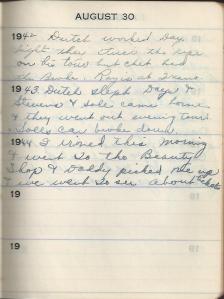 AUGUST 30
1942 Dutch worked Day
light then
on his tour but chet had
the Broke.
1943. Dutch slept Days &
Stevens & Sale came home
& they went out evening tour.
car broke down.
1944 I ironed this morning
& went to the Beauty
Shop & Daddy picked me up
& we went to see about
19
19